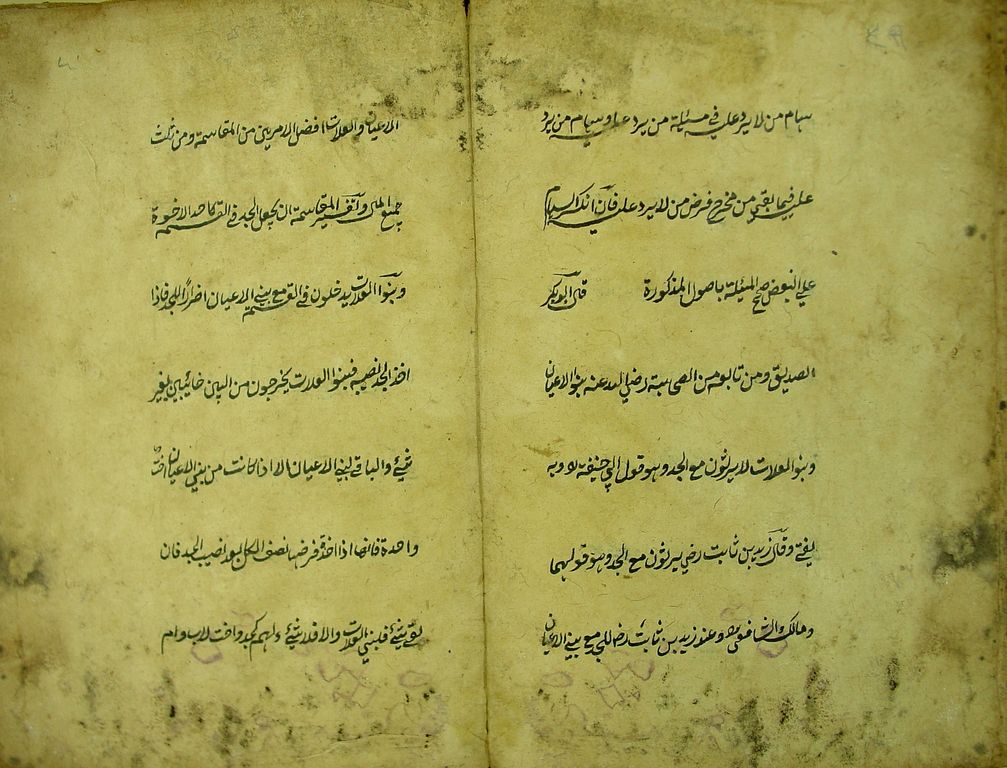 سهام من لا يرد عليه في مسئلة من يرد عليه وسهام من يرد
عليه فيما بقي من مخرج فرض من لا يرد عليه فان انكسر السهام
علي البعض صحح المسئلة باصول المذكورة قال ابو بكر
الصديق ومن تابعه من الصحابة رضي الله عنه بنو الاعيان
وبنو العلات لا يرثون مع الجد وهو قول ابي حنيفة وبه
يفتي وقال زيد بن ثابت رض يرثون مع الجد وهو قولهما
ومالك والشافعي وعند زيد بن ثابت رض للجد مع بني الاعيان
الاعيان والعلات افضل الامرين من المقاسمة ومن ثلث
جميع المال وتفسير المقاسمة ان يجعل الجد في القسمة كاحد الاخوة
وبنوا العلات يدخلون في القسمة مع بني الاعيان اضرارا للجد فاذا
اخذ الجد نصيبه فبنوا العلات يخرجون من البين خائبين بغير
شيء والباقي لبني الاعيان الا اذا كانت من بني الاعيان اخت
واحدة فانها اذا اخذت فرضها نصف الكل بعد نصيب الجد فان
بقي شيء فلبني العلات والا فلا شيء لهم كجد واخت لاب وام